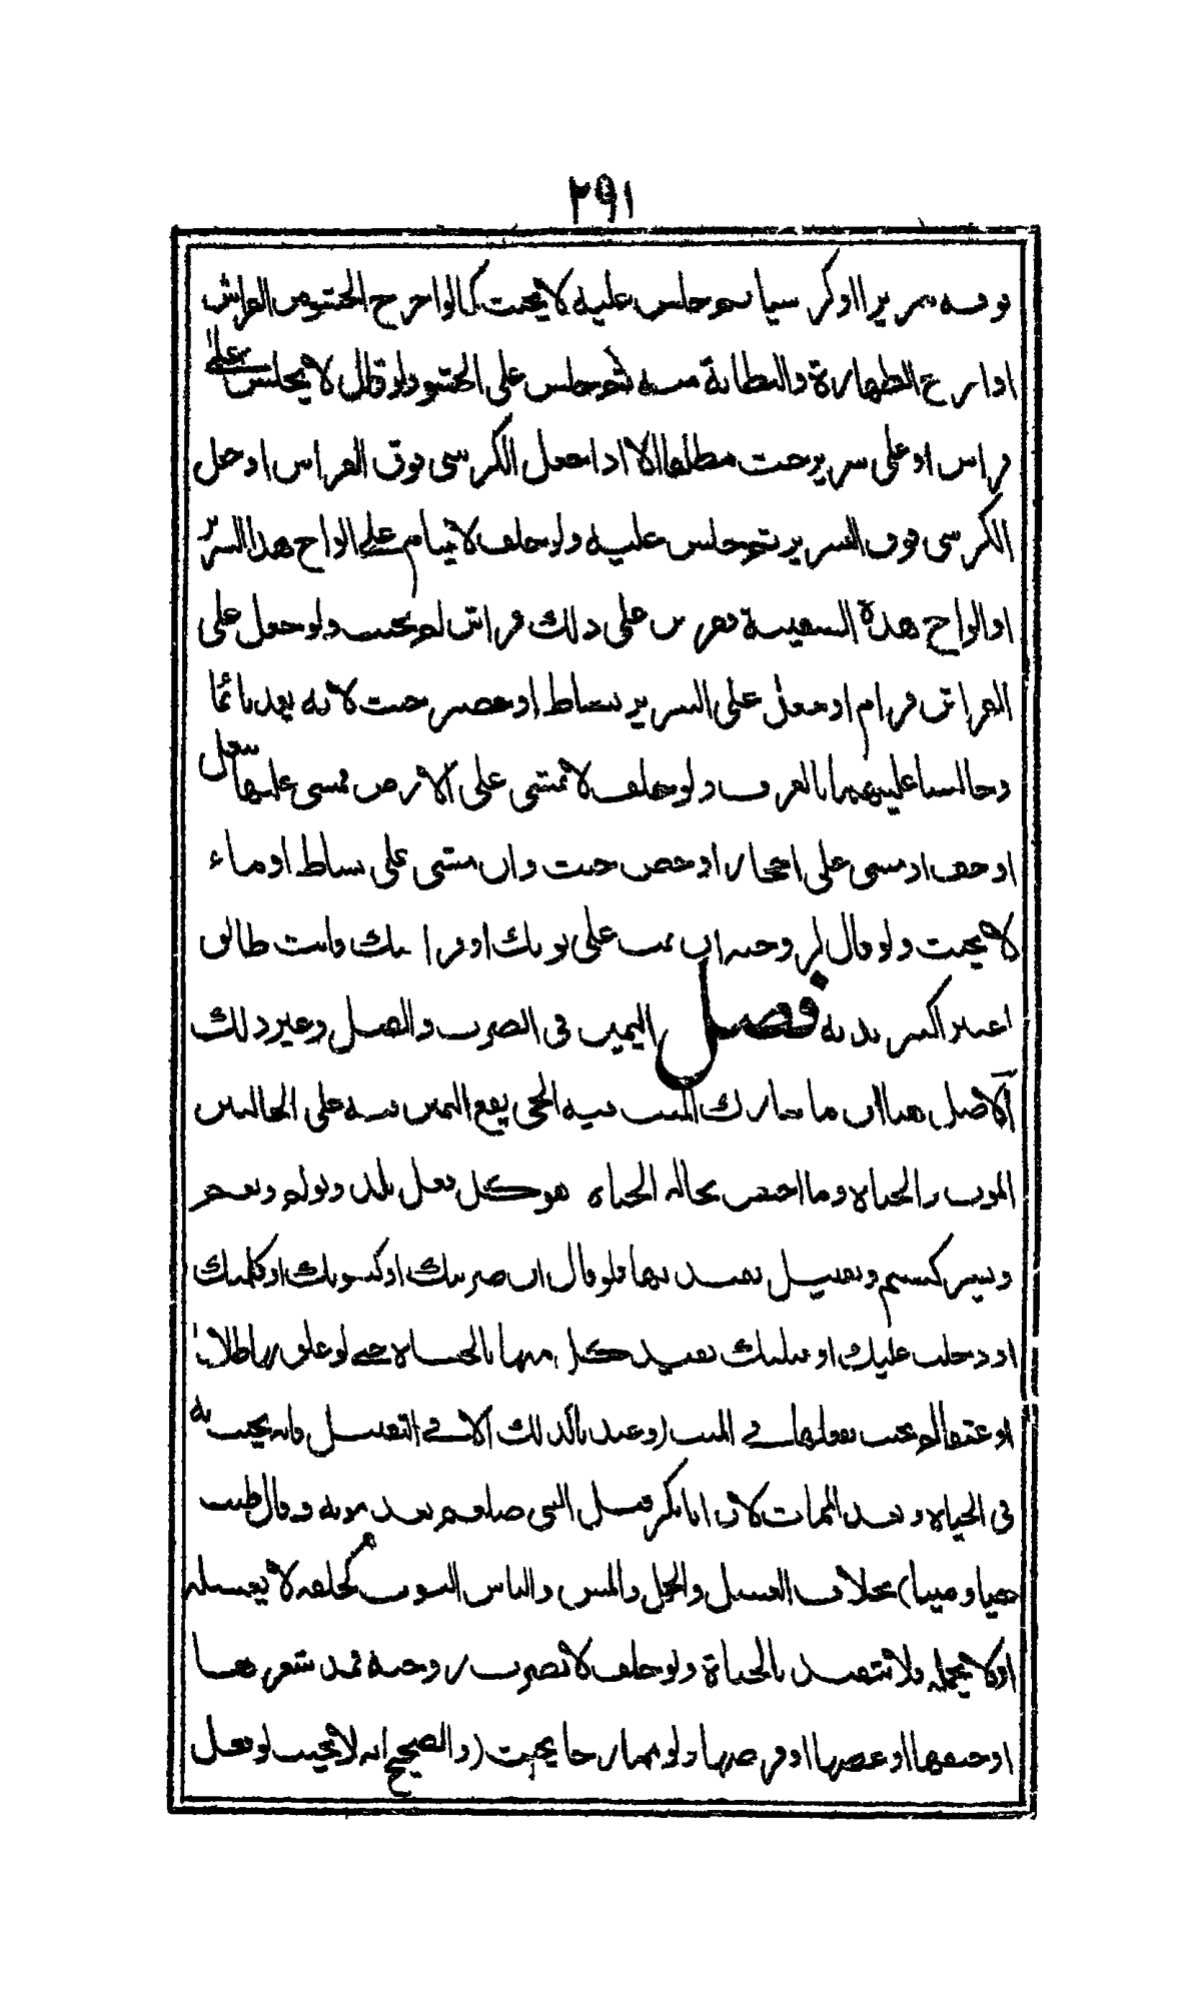 ٢٩١
فوقه سريرا او كرسيا ثم جلس عليه لا يحنث كما لو اخرج الحشو من الفراش
او نزع الظهارة والبطانة منه ثم جلس على الحشو ولو قال لا يجلس على
فراش او على سرير حنث مطلقا الا اذا جعل الكرسى فوق الفراش او جعل
الكرسى فوق السرير ثم جلس عليه ولو حلف لا ينام على الواح هذا السرير
او الواح هذه السفينة ففرش على ذلك فراش لم يحنث ولو جعل على
الفراش قرام او جعل على السرير بساط او حصير حنث لانه يعد نائما
وجالسا عليهما بالعرف ولو حلف لا يمشى على الارض فمشى عليها بنعل
او خف او مشى على احجار او جص حنث وان مشى على بساط او ماء
لا يحنث ولو قال لزوجته ان نمت على ثوبك او فراشك فانت طالق
اعتبر اكثر بدنه فصل اليمين فى الضرب والقتل وغير ذلك
الاصل هنا ان ما شارك الميت فيه الحى يقع اليمين فيه على الحالتين
الموت والحياة وما اختص بحالة الحياة هو كل فعل يلذ ويولم ويغم
ويسر كشتم وتقبيل تقيد بها فلو قال ان ضربتك او كسوتك او كلمتك
او دخلت عليك او قبلتك تقيد كل منها بالحياة حتى لو علق بها طلاقا
او عتقا لم يحنث بفعلها فى الميت (وعندنا كذلك الا فى التقبيل فانه يحنث به
فى الحياة وبعد الممات لان ابا بكر قبل النبى صلعم بعد موته وقال طبت
حيا وميتا) بخلاف الغسل والحمل والمس والباس الثوب كحلفه لا يغسله
او لا يحمله فلا تتقيد بالحياة ولو حلف لا يضرب زوجته فمد شعرها
او خنقها او عضها او قرصها ولو ممازحا يحنث (والصحيح انه لا يحنث لو فعل